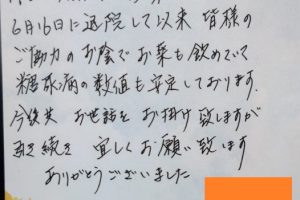 6月16日に退院して以来 皆様の
ご協力のお陰でお薬も飲めていて
糖尿病の数値も安定しております.
今後共 お世話を お掛け致しますが
引き続き 宜しくお願い致します
ありがとうございました